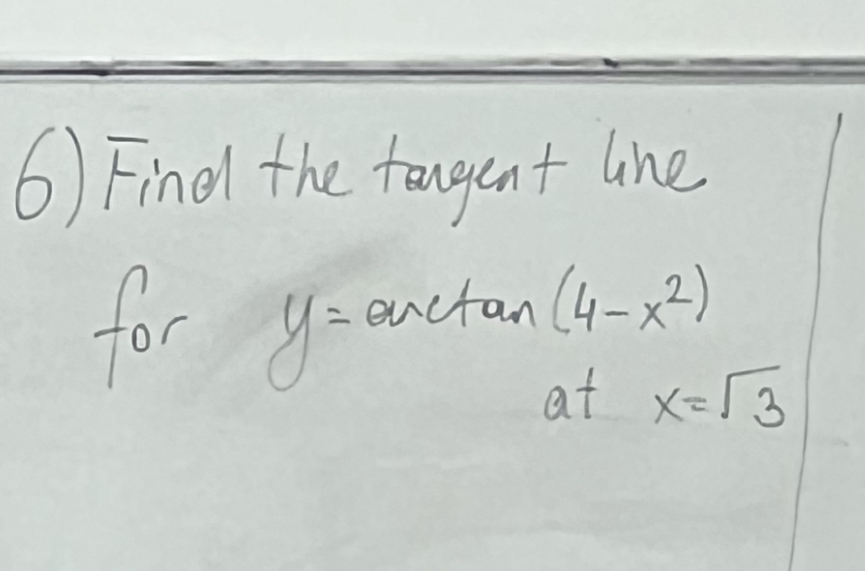 6) Find the tangent line
for y = arctan (4-x²)
at x=√3